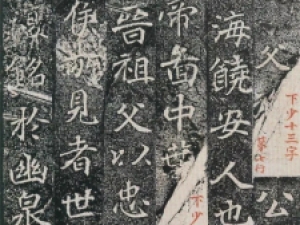 父 公
下少十三字
海饒安人也
帝啚中葉
下少
晉祖父以忠
見者世
銘於幽泉